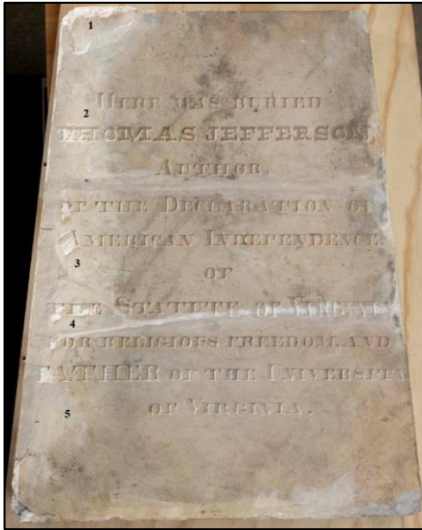 1
HERE WAS BURIED
2
THOMAS JEFFERSON
AUTHOR.
OF THE DECLARATION OF
AMERICAN INDEPENDENCE
3
OF
THE STATUTE OF VIRGINIA
4
FOR RELIGIOUS FREEDOM, AND
FATHER OF THE UNIVERSITY
OF VIRGINIA.
5